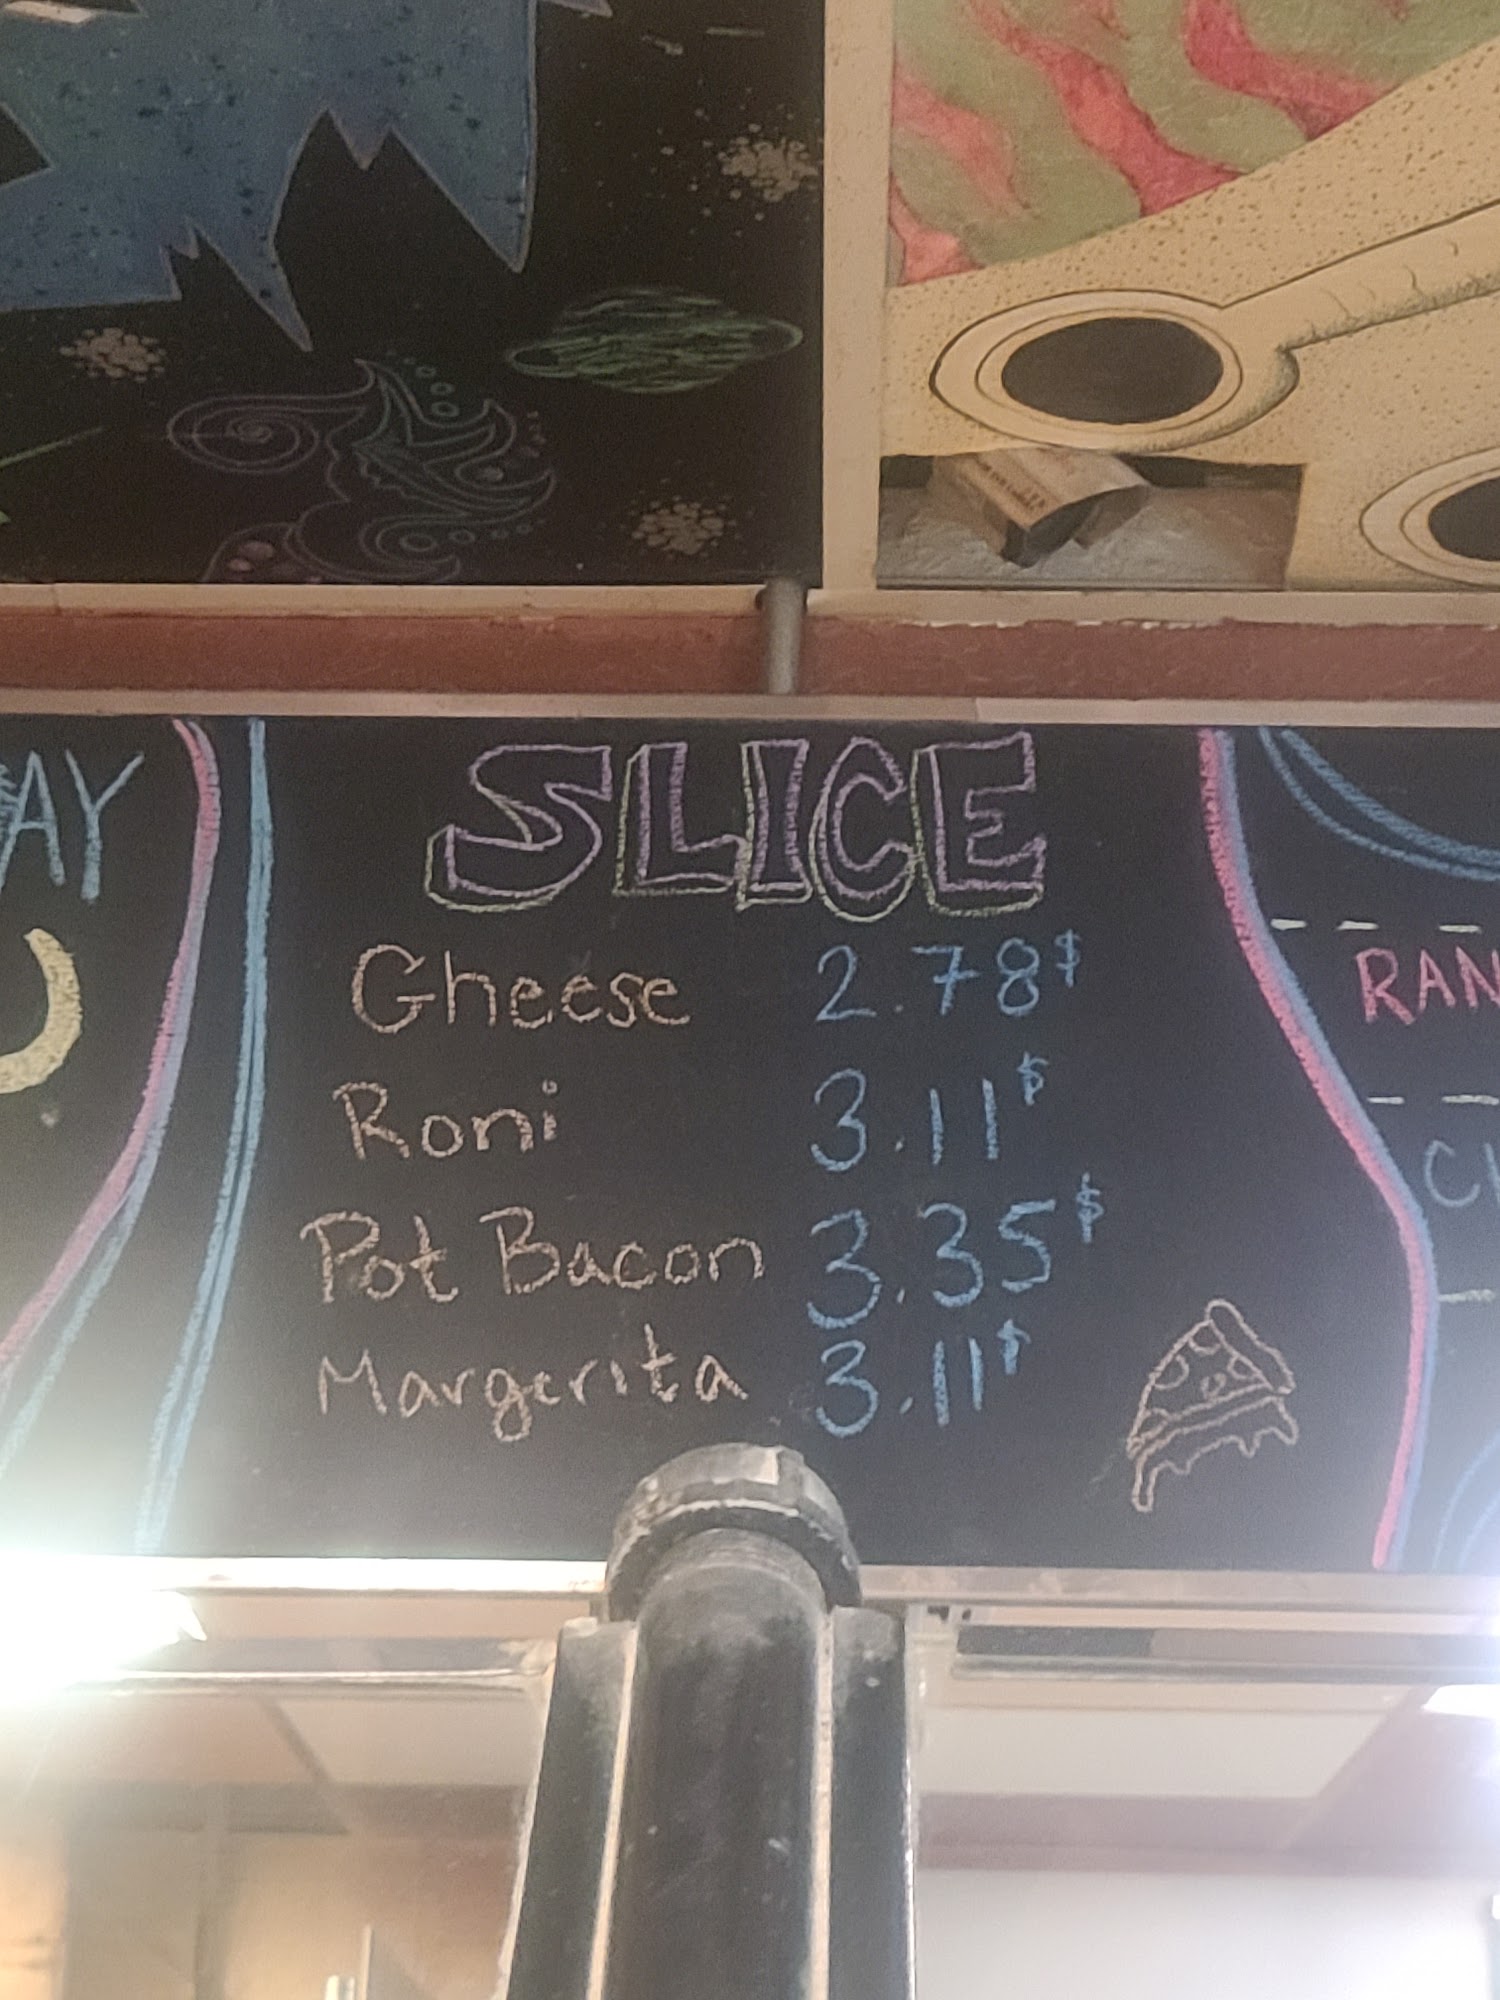 AY
SLICE
Gheese 2.78$
Roni 3.11$
Pot Bacon 3.35$
Margerita 3.11$
RAN